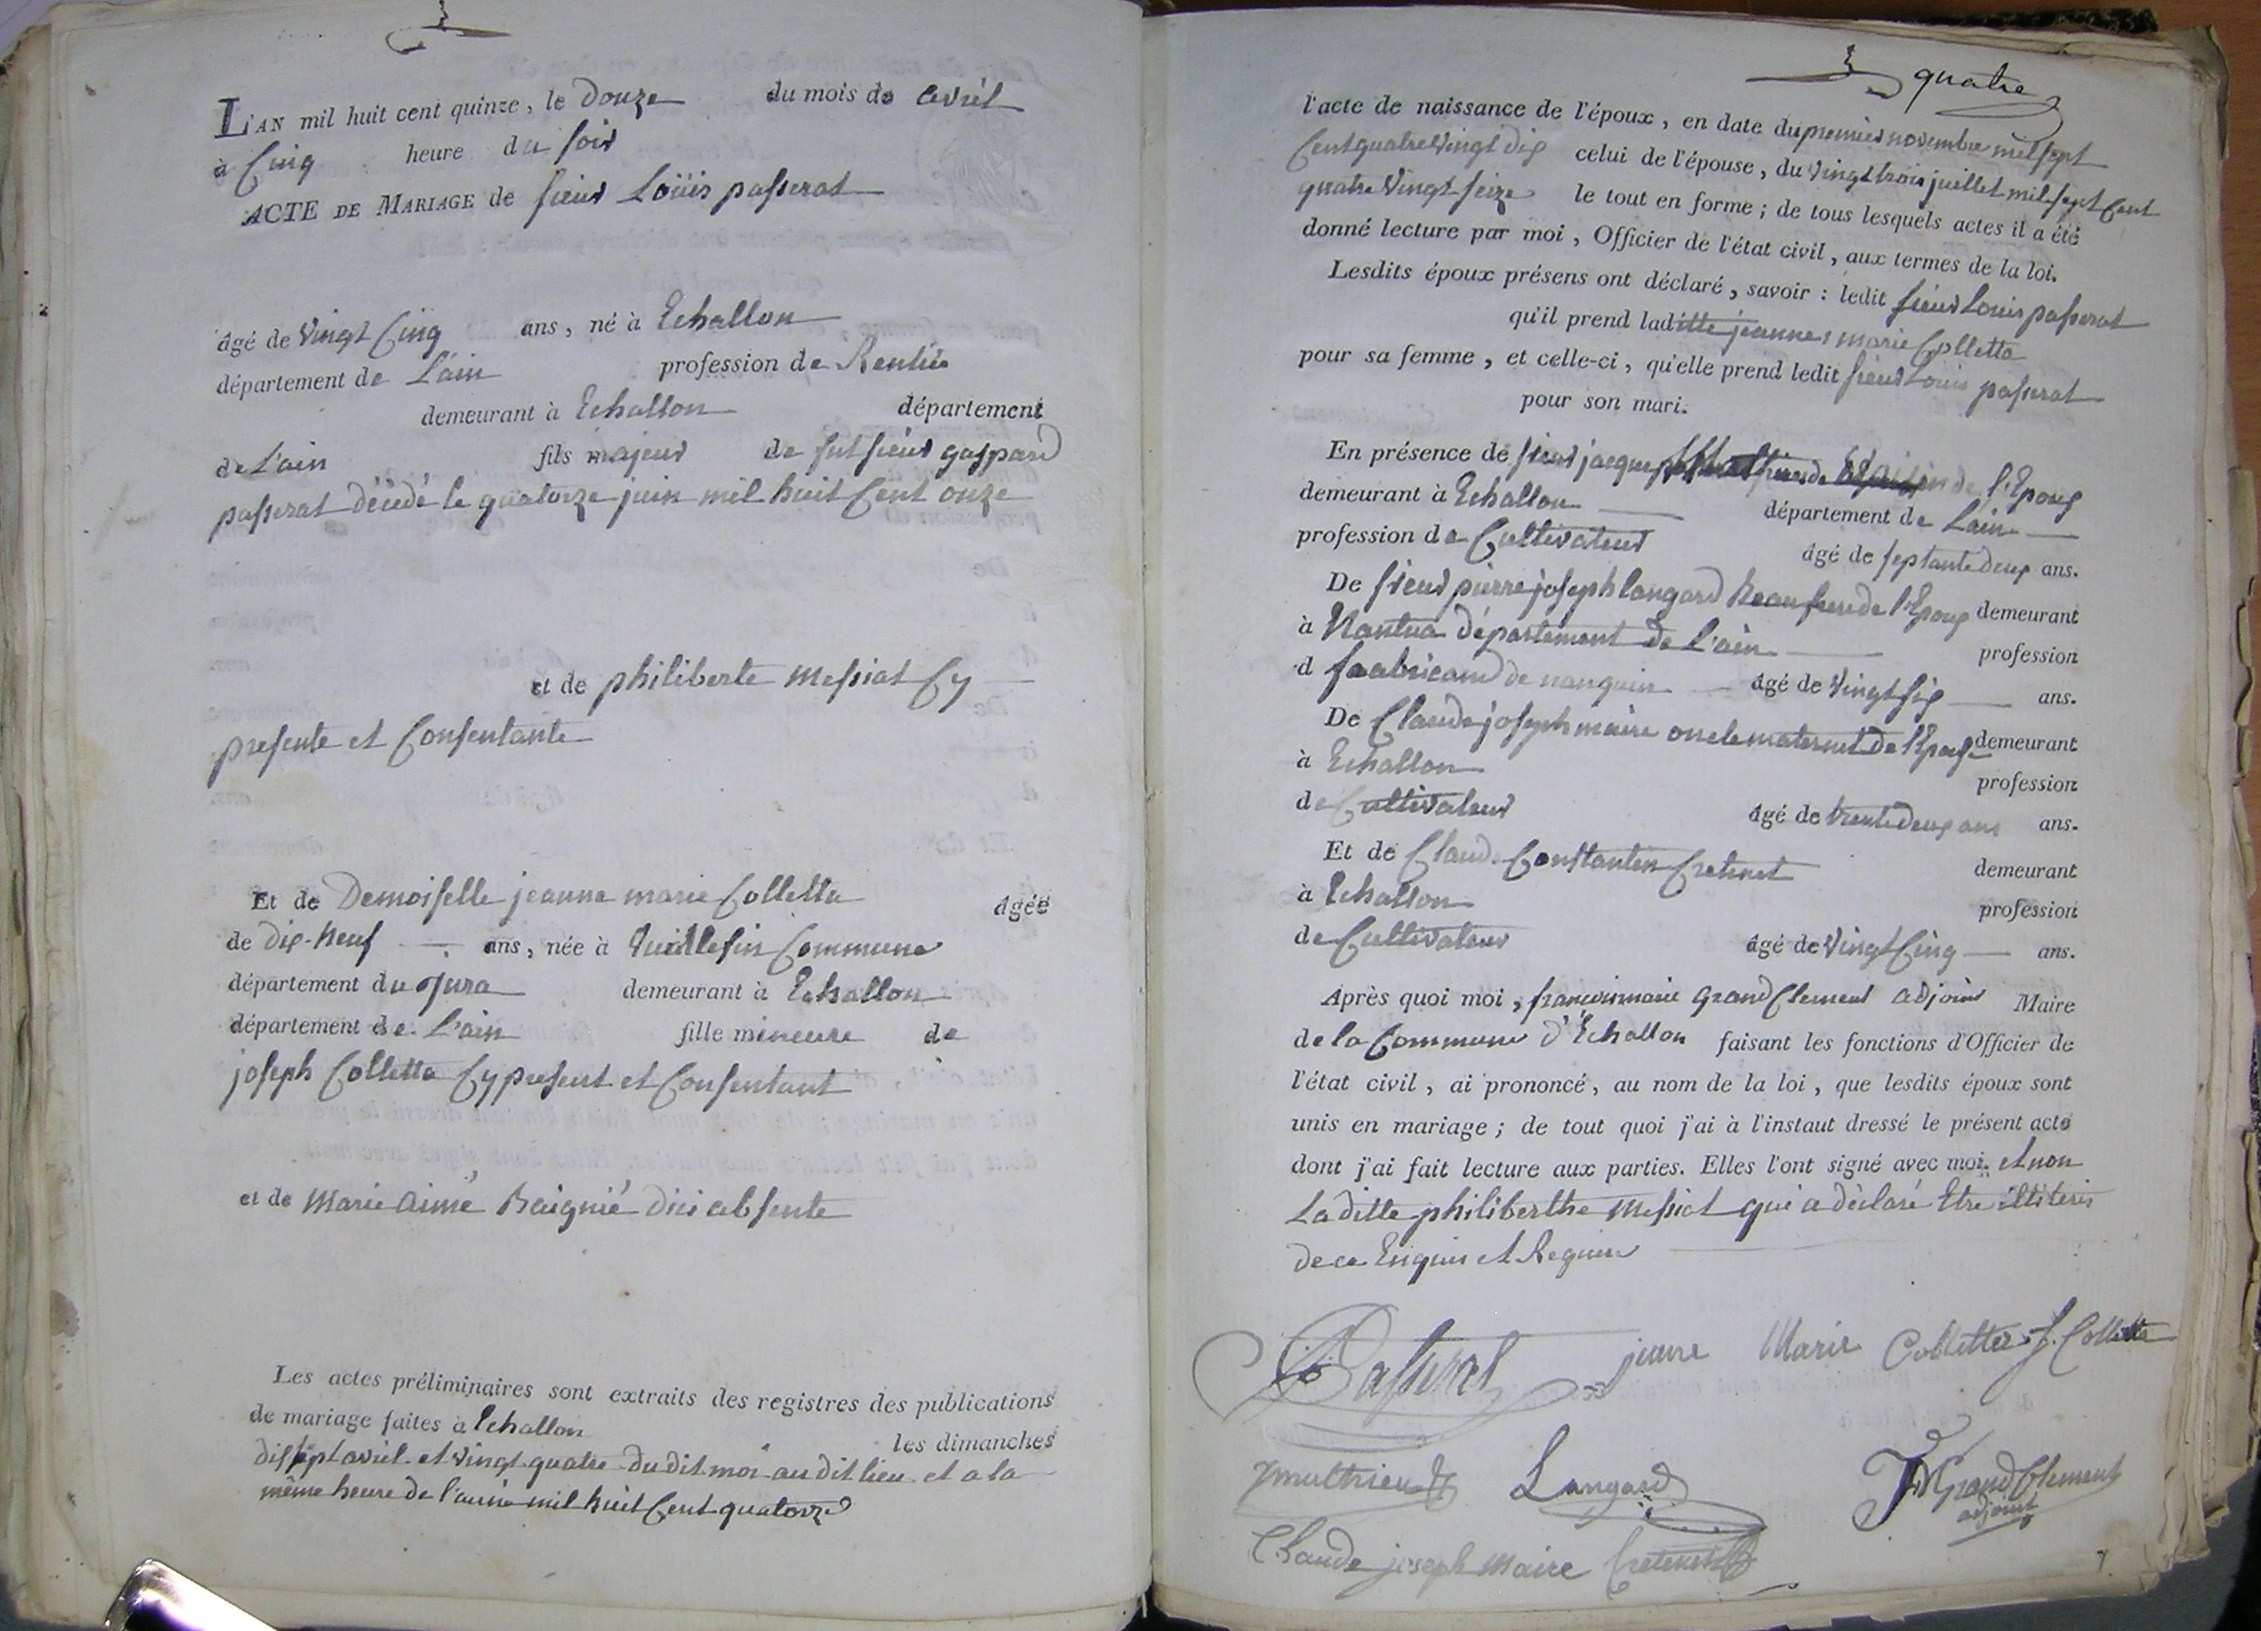 L'AN mil huit cent quinze, le Douze du mois de avril
à Cinq heure du soir
ACTE DE MARIAGE de sieur Loüis passerat
âgé de vingt Cinq ans, né à Echallon
département de L'ain profession de Rentier
demeurant à Echallon département
de L'ain fils majeur de fut sieur gaspard
passerat décédé le quatorze juin mil huit Cent onze
et de philiberte messiat Cy
presente et Consentante
Et de Demoiselle jeanne marie Colletta âgée
de dix-neuf ans, née à Commune
département du Jura demeurant à Echallon
département de L'ain fille mineure de
joseph Colletta Cy present et Consentant
et de Marie aimé d'ici absente
Les actes préliminaires sont extraits des registres des publications
de mariage faites à Echallon les dimanches
dissept avril et vingt quatre du dit moi au dit lieu et a la
même heure de l'année mil huit Cent quatorze
quatre
l'acte de naissance de l'époux, en date du premier novembre mil sept
Cent quatre vingt dix celui de l'épouse, du vingt trois juillet mil sept Cent
quatre vingt seize le tout en forme; de tous lesquels actes il a été
donné lecture par moi, Officier de l'état civil, aux termes de la loi.
Lesdits époux présens ont déclaré, savoir: ledit sieur Louis passerat
qu'il prend laditte jeanne marie Colletta
pour sa femme, et celle-ci, qu'elle prend ledit sieur Louis passerat
pour son mari.
En présence de sieur jacques de l'Epoux
demeurant à Echallon département de Lain
profession de Cultivateur âgé de septante deux ans.
De sieur pierre joseph Langard Beau frere de l'Epoux demeurant
à Nantua département de L'ain profession
d faabricand de nanquin âgé de vingt six ans.
De Claude joseph maire oncle maternel de l'Epouse demeurant
à Echallon profession
de Cultivateur âgé de trente deux ans ans.
Et de Claude Constantin Cretenet demeurant
à Echallon profession
de Cultivateur âgé de vingt Cinq ans.
Après quoi moi, francois marie Grand Clement adjoint Maire
de la Commune d'Echallon faisant les fonctions d'Officier de
l'état civil, ai prononcé, au nom de la loi, que lesdits époux sont
unis en mariage; de tout quoi j'ai à l'instaut dressé le présent acte
dont j'ai fait lecture aux parties. Elles l'ont signé avec moi. et non
La ditte philiberthe messiat qui a déclaré Etre illiteris
de ce Enquis et Requise
Passerat jeanne Marie Colletta J. Colletta
Langard JM Grand Clement
adjoint
Claude joseph Maire Cretenet